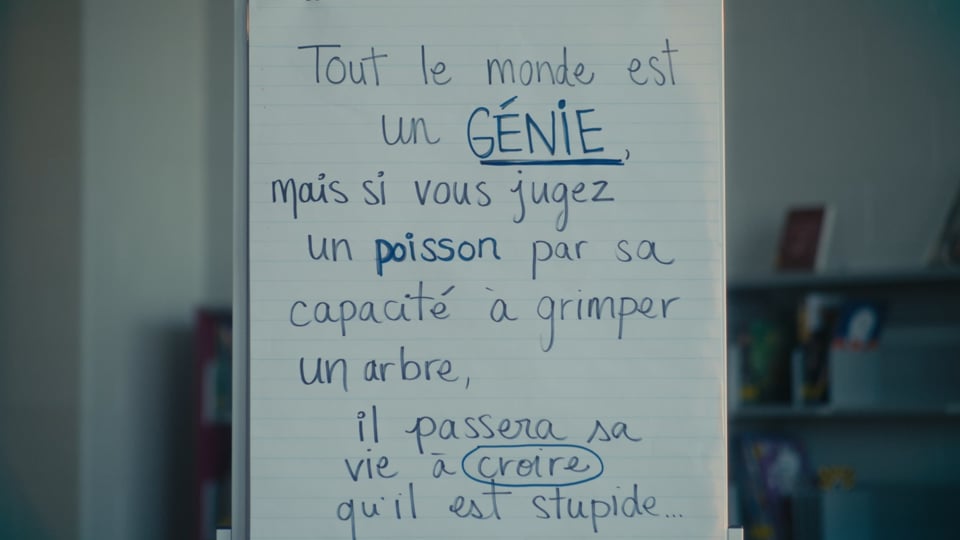 Tout le monde est
un GÉNIE,
mais si vous jugez
un poisson par sa
capacité à grimper
un arbre,
il passera sa
vie à croire
qu'il est stupide...